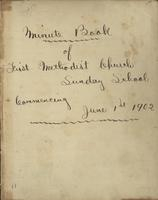 Minute Book
of
First Methodist Church
Sunday School
Commencing
June 1st 1902